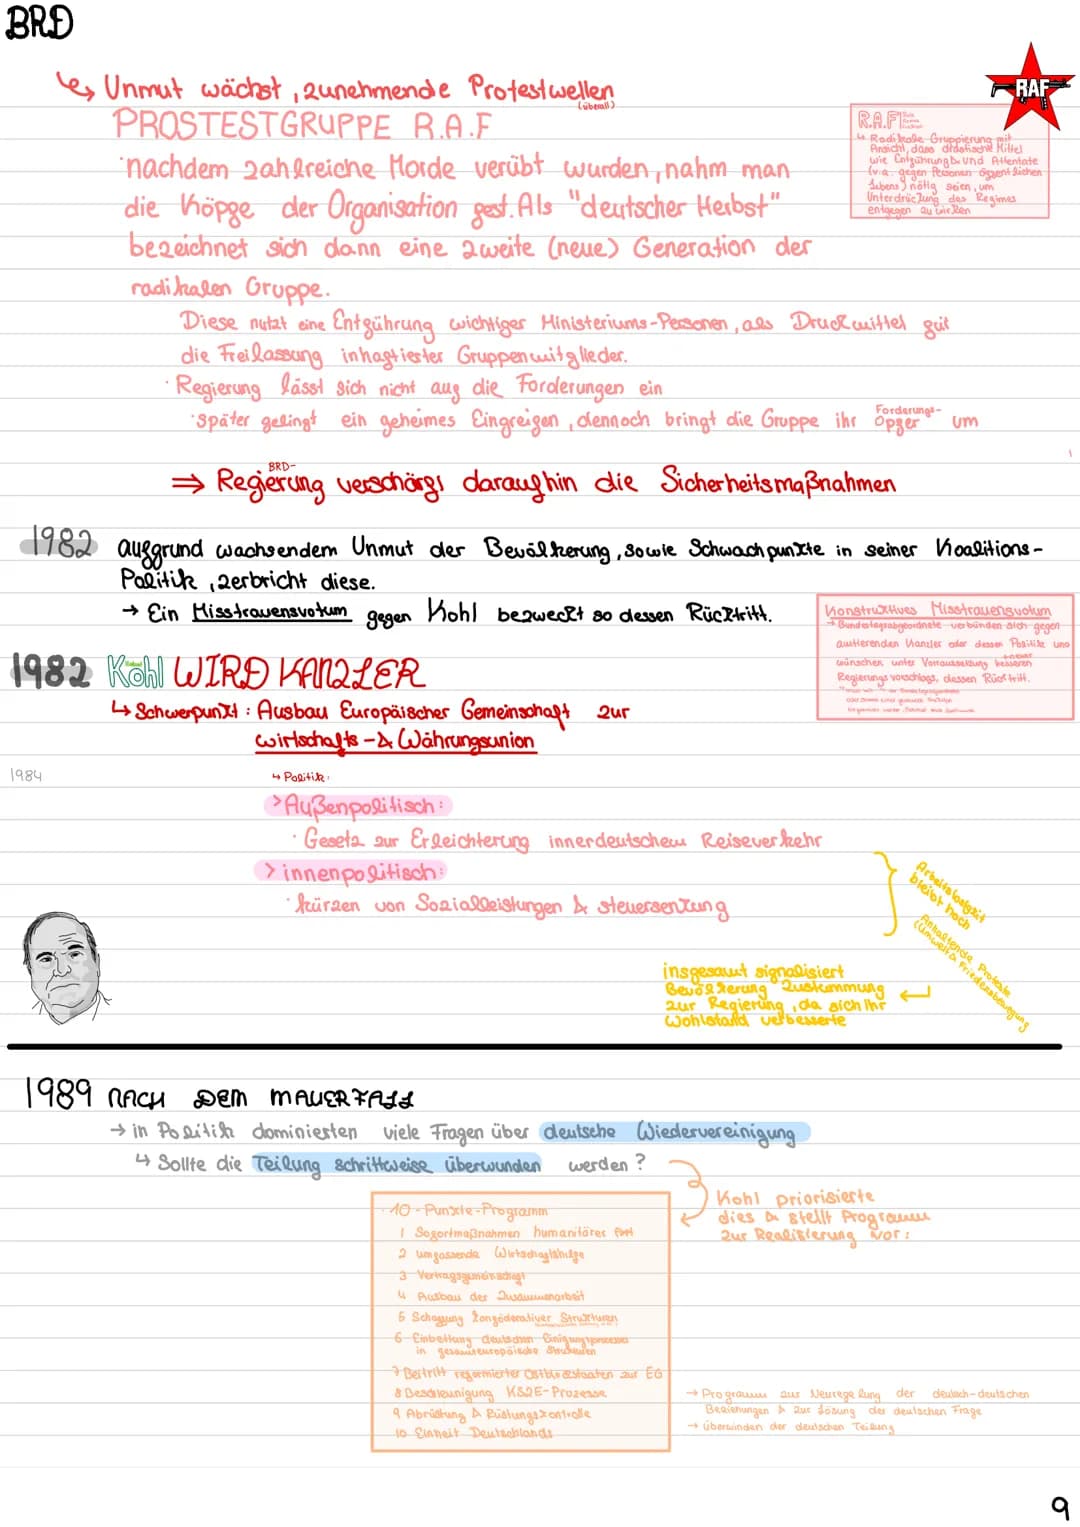 BRD
↳ Unmut wächst, zunehmende Protestwellen
(überall)
PROSTESTGRUPPE R.A.F
RAF
R.A.F
Rote
Armee
Fraktion
↳ Radikale Gruppierung mit
Ansicht, dass drastische Mittel
wie Entführung & und Attentate
(v.a. gegen Personen öffentlichen
Lebens) nötig seien, um
Unterdrückung des Regimes
entgegen zu wirken
·nachdem zahlreiche Morde verübt wurden, nahm man
die Köpfe der Organisation fest. Als "deutscher Herbst"
bezeichnet sich dann eine zweite (neue) Generation der
radikalen Gruppe.
Diese nutzt eine Entführung wichtiger Ministeriums-Personen, als Druckmittel für
die Freilassung inhaftierter Gruppenmitglieder.
· Regierung lässt sich nicht auf die Forderungen ein
·später gelingt ein geheimes Eingreifen, dennoch bringt die Gruppe ihr Forderungs-
Opfer um
⇒ BRD-
Regierung verschärft daraufhin die Sicherheitsmaßnahmen
1982 aufgrund wachsendem Unmut der Bevölkerung, sowie Schwachpunkte in seiner Koalitions-
Politik, zerbricht diese.
→ Ein Misstrauensvotum gegen Kohl bezweckt so dessen Rücktritt.
Konstruktives Misstrauensvotum
→ Bundestagsabgeordnete verbünden sich gegen
amtierenden Kanzler oder dessen Politik und
wünschen unter Vorraussetzung besseren
Regierungsvorschlags, dessen Rücktritt.
1982 Kohl WIRD KANZLER
↳ Schwerpunkt: Ausbau Europäischer Gemeinschaft zur
wirtschafts-& Währungsunion
1984
↳ Politik:
> Außenpolitisch:
· Gesetz zur Erleichterung innerdeutschem Reiseverkehr
> innenpolitisch:
· kürzen von Sozialleistungen & steuersenkung
Arbeitslosigkeit
bleibt hoch
Anhaltende Proteste
(Umwelt & Friedensbewegung
insgesamt signalisiert
Bevölkerung Zustimmung
zur Regierung, da sich ihr
Wohlstand verbesserte
1989 NACH DEM MAUERFALL
→ in Politik dominierten viele Fragen über deutsche Wiedervereinigung
↳ Sollte die Teilung schrittweise überwunden werden?
Kohl priorisierte
dies & stellt Programm
zur Realisierung vor:
· 10-Punkte-Programm
1 Sofortmaßnahmen humanitärer Art
2 umfassende Wirtschaftshilfe
3 Vertragsgemeinschaft
4 Ausbau der Zusammenarbeit
5 Schaffung konföderativer Strukturen
6 Einbettung deutschen Einigungsprozess
in gesamteuropäische Strukturen
7 Beitritt reformierter Ostblockstaaten zur EG
8 Beschleunigung KSZE-Prozesse
9 Abrüstung & Rüstungskontrolle
10 Einheit Deutschlands
→ Programm zur Neuregelung der deutsch-deutschen
Beziehungen & zur Lösung der deutschen Frage
→ überwinden der deutschen Teilung
9